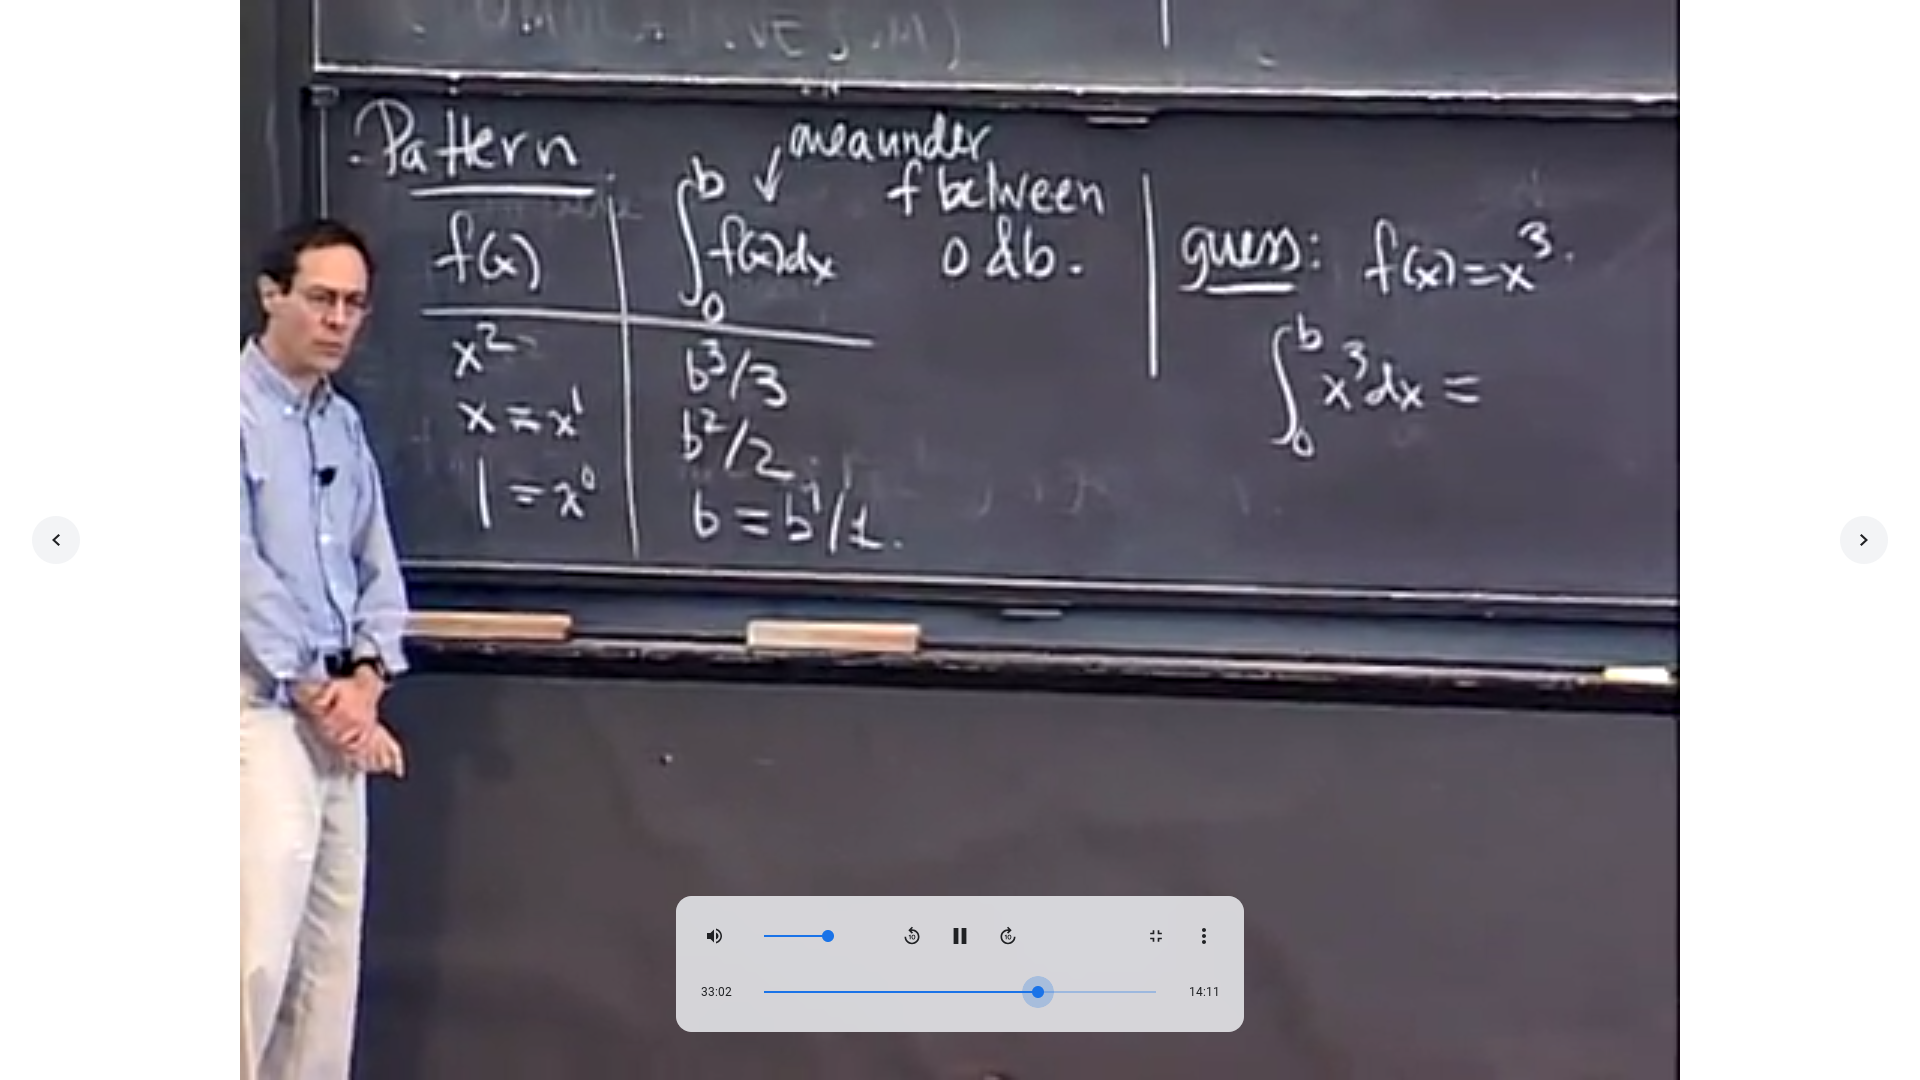 Pattern
area under
f between
0 & b.
f(x)
∫₀ᵇ f(x)dx
x²
b³/3
x = x¹
b²/2
1 = x⁰
b = b¹/1.
guess: f(x) = x³.
∫₀ᵇ x³dx =
10
10
33:02
14:11